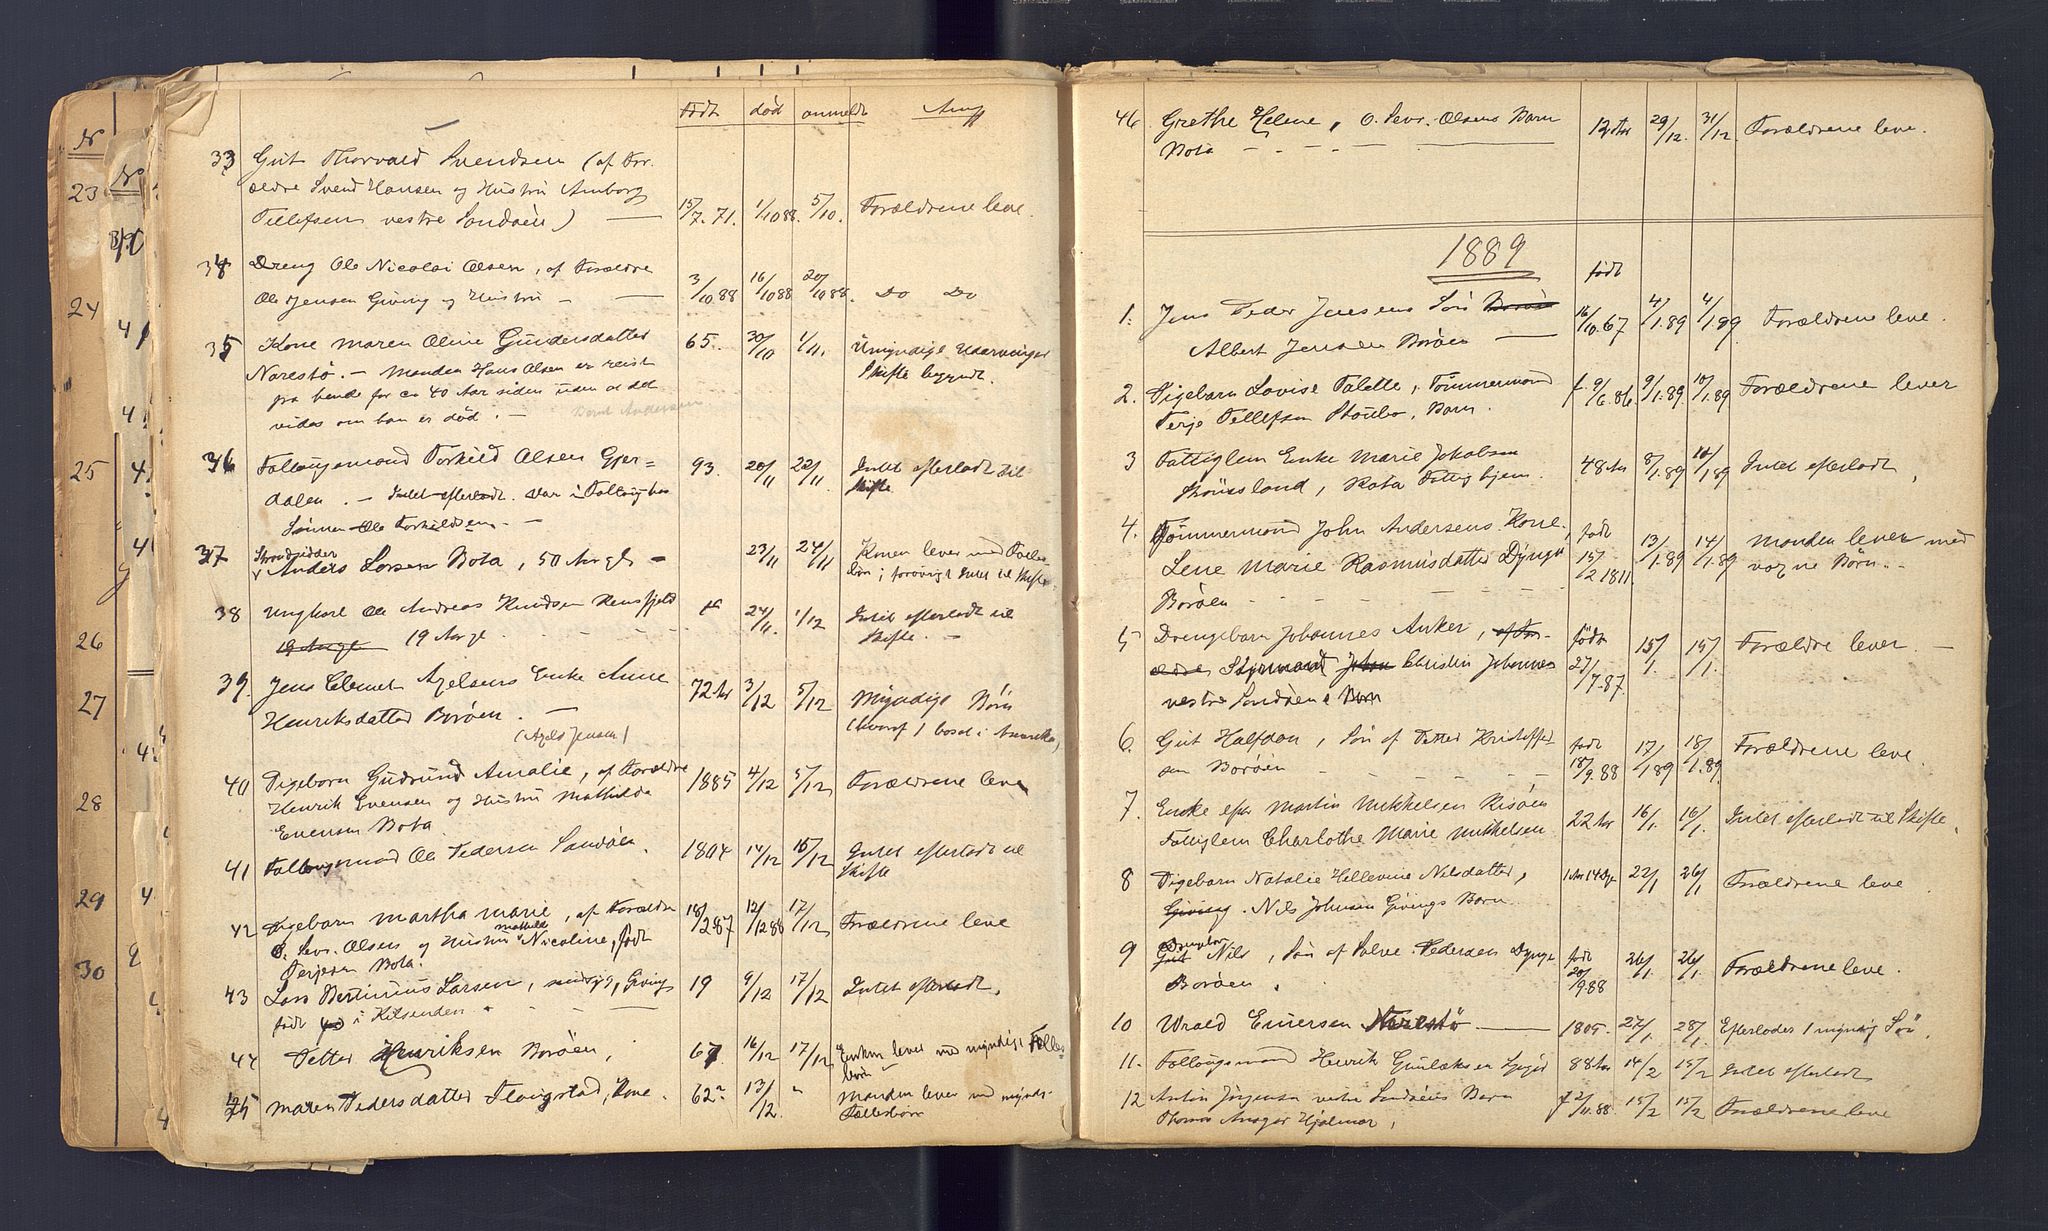 N
23
24
25
26
27
28
29
30
No
født død anmeldt Anm
33 Gut Thorvald Svendsen (af For-
ældre Svend Hansen og Hustru
Tellefsen vestre Sandøen) — 15/7.71. 1/10 88 5/10. Forældrene leve.
34 Dreng Ole Nicolai Olsen, af Forældre
Ole Jensen Giving og Hustru — 3/10 88 16/10 88 20/10 88. Do Do
35 Kone Maren Oline Gundersdatter 65. 30/10 1/11. Umyndige Udarvinger
Narestø. — Manden Hans Olsen er reist Skifte begyndt.
for ca 40 Aar siden uden at det
vides om han er død. — Andersen
36 Fallougsmand Torkild Olsen Gjer= 93. 20/11 22/11. Intet efterladt til
dalen. — Intet efterladt. Var i hos Skifte
Sønnen Ole Torkildsen. —
37 Strandsidder Anders Larsen Bota, 50 Aar gl — 23/11 24/11 Konen lever med Fælles
børn; forøvrigt Intet til Skifte
38 Ungkarl Ole Andreas Knudsen 24/11. 1/12 Intet efterladt til
19 Aar gl 19 Aar gl Skifte. —
39. Jens Clemet Axelsens Enke Anne 72 Aar 3/12 5/12 Myndige Børn
Henriksdatter Borøen. — (hvoraf 1 bosat i Amerika)
(Axel Jensen)
40 Pigebarn Gudrund Amalie, af Forældre 1885 4/12 5/12 Forældrene leve
Henrik Evensen og Hustru Mathilda
Evensen Bota.
41 Fallougsmand Ole Pedersen Sandøen. 1804 14/12 15/12 Intet efterladt til
Skifte
42 Pigebarn Martha Marie, af Forældre 18/2 87 12/12 88 17/12 Forældrene leve
O. Sevr. Olsen og Hustru Mathilde Nicoline, født
Terjesen Bota.
43 Lars Bertinius Larsen, sindsyg, Giving 19 9/12 17/12 Intet efterladt.
født i Kilsenden
44 Petter Henriksen Borøen, 67 16/12 17/12 Enken lever med myndige Fælles
børn
45 Maren Pedersdatter Flangstad, Kone. 62 13/12. " Manden lever med mynd.
Fællesbørn
46 Grethe Helene, O. Sevr. Olsens Barn 12 Aar 29/12. 31/12 Forældrene leve.
Bota — — —
1889
født
1. Jens Peder Jensens Søn Borøen 16/10.67 4/1.89 4/1.89 Forældrene leve.
Albert Jensen Borøen —
2. Pigebarn Lovise Talette, Tømmermand f. 9/6.86. 9/1.89. 10/1.89 Forældrene lever
Terje Tellefsen Stoubo, Barn.
3 Fattiglem Enke Marie Jakobsen 48 Aar 8/1.89 10/1.89 Intet efterladt,
Bota Fattighjem.
4. Tømmermand John Andersens Kone, født 13/1.89 14/1.89 Manden lever med
Lene Marie Rasmusdatter Dynge 15/2 1811 voxne Børn. —
Borøen — — —
5 Drengebarn Johannes Anker, af For- født 15/1. 15/1. Forældre lever. —
ældre Styrmand John Christin Johannes 27/7.87.
vestre Sandøens Barn
6. Gut Halfdan, Søn af Petter Kristoffer- født 17/1 89 18/1.89. Forældrene leve.
sen Borøen — — 18/9.88
7. Enke efter Martin Mikkelsen Risøen 22 Aar 16/1. 16/1. Intet efterladt til Skifte.
Fattiglem Charlothe Marie Mikkelsen
8 Pigebarn Natalie Hellevine Nilsdatter, 1 Aar 14 Dge 22/1 26/1. Forældrene leve.
Giving. Nils Johnsen Givings Barn.
9 Drengebarn Gut Nils, Søn af Salve Pedersen Dynge født 26/1. 26/1. Forældrene leve.
Borøen. 20/9.88
10 Wrold Evensen Narestø — 1805. 27/1 28/1. Efterlader 1 myndig Søn.
11. Fallougsmand Henrik 88 Aar 14/2 15/2 Intet efterladt
12 Antin Jørgensen vestre Sandøens Barn f 2/11.88. 15/2 15/2 Forældrene leve
Thomas Ansgar Hjalmar,